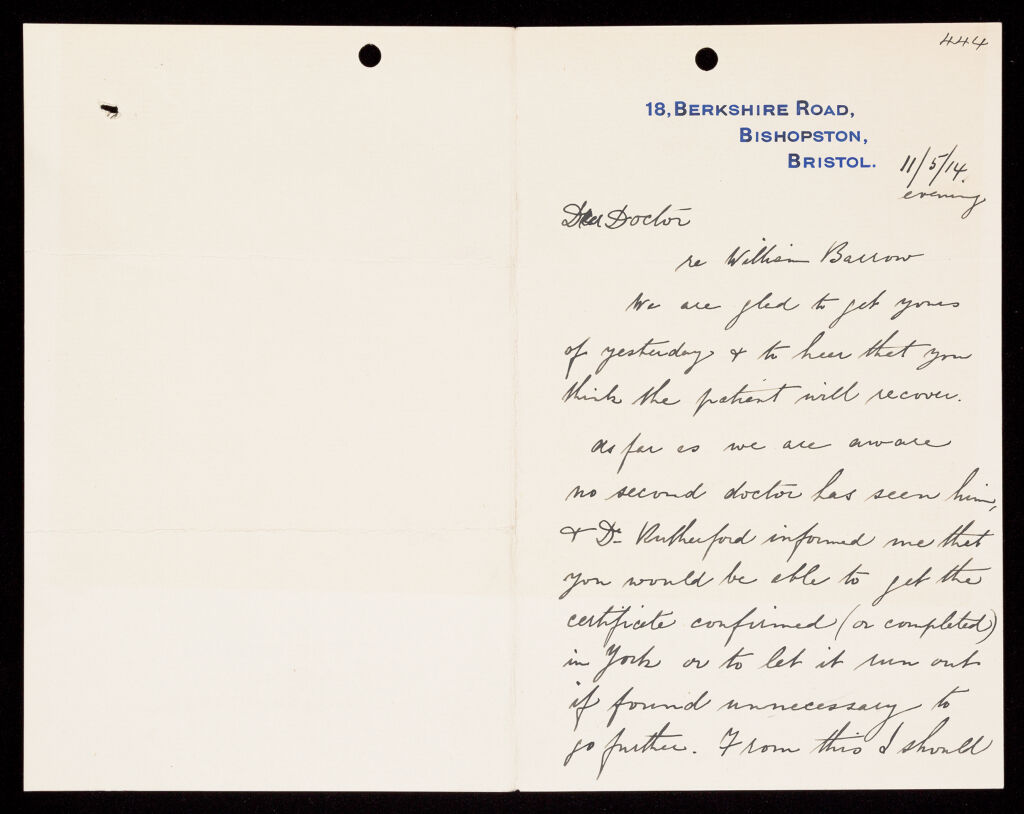 444
18, BERKSHIRE ROAD,
BISHOPSTON,
BRISTOL.
11/5/14.
evening
Dear Doctor
re William Barrow
We are glad to get yours
of yesterday & to hear that you
think the patient will recover.
As far as we are aware
no second doctor has seen him,
& Dr Rutherford informed me that
you would be able to get the
certificate confirmed (or completed)
in York or to let it run out
if found unnecessary to
go further. From this I should